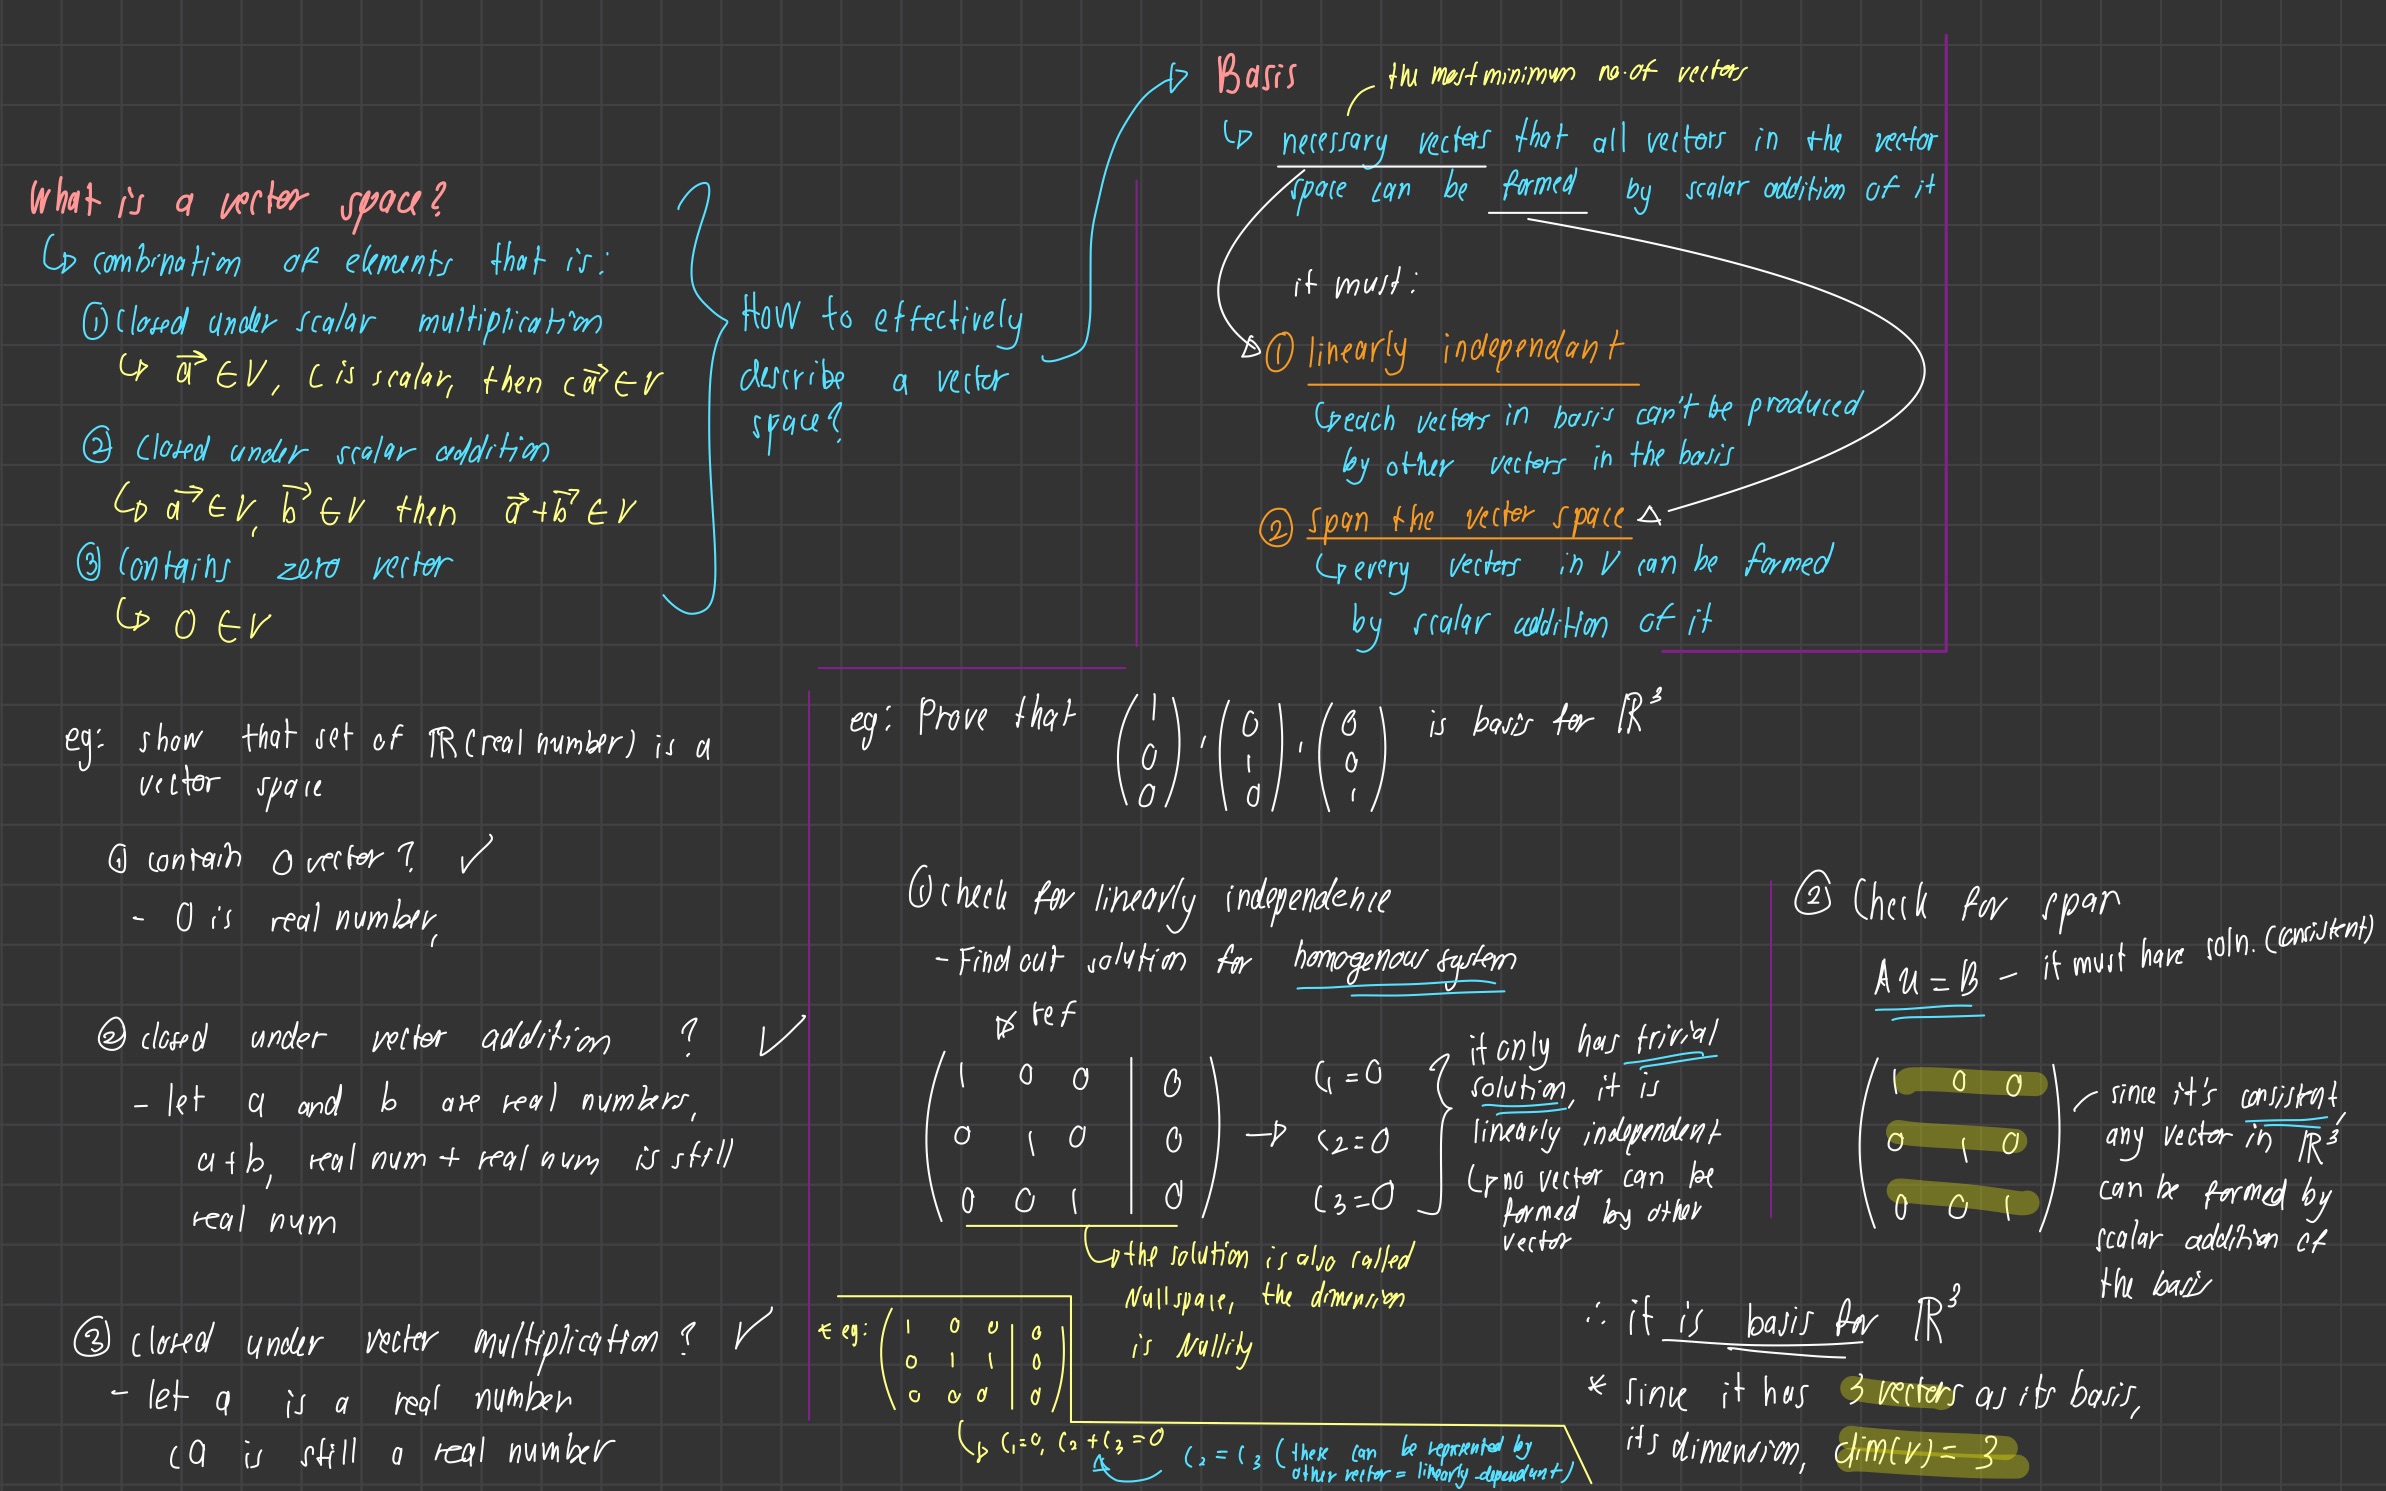 What is a vector space?
↳ combination of elements that is:
① Closed under scalar multiplication
↳ a⃗ ∈ V, c is scalar, then c a⃗ ∈ V
② Closed under scalar addition
↳ a⃗ ∈ V, b⃗ ∈ V then a⃗ + b⃗ ∈ V
③ Contains zero vector
↳ 0 ∈ V
How to effectively
describe a vector
space?
Basis
the most minimum no. of vectors
↳ necessary vectors that all vectors in the vector
space can be formed by scalar addition of it
it must:
① linearly independant
↳ each vectors in basis can't be produced
by other vectors in the basis
② span the vector space
↳ every vectors in V can be formed
by scalar addition of it
eg: show that set of ℝ (real number) is a
vector space
① contain 0 vector? ✓
- 0 is real number,
② closed under vector addition ? ✓
- let a and b are real numbers,
a+b, real num + real num is still
real num
③ closed under vector multiplication? ✓
- let a is a real number
ca is still a real number
eg: Prove that (1 0 0), (0 1 0), (0 0 1) is basis for ℝ³
① check for linearly independence
- Find out solution for homogenous system
ref
1 0 0 | 0
0 1 0 | 0
0 0 1 | 0
→
C₁ = 0
C₂ = 0
C₃ = 0
if only has trivial
solution, it is
linearly independent
↳ no vector can be
formed by other
vector
↳ the solution is also called
Nullspace, the dimension
is Nullity
* eg:
1 0 0 | 0
0 1 1 | 0
0 0 0 | 0
↳ C₁=0, C₂ + C₃ = 0
C₂ = C₃ (these can be represented by
other vector = linearly dependant)
② Check for span
Au = B - it must have soln. (consistent)
1 0 0
0 1 0
0 0 1
since it's consistent,
any vector in ℝ³
can be formed by
scalar addition of
the basis
∴ it is basis for ℝ³
* since it has 3 vectors as its basis,
its dimension, dim(V) = 3